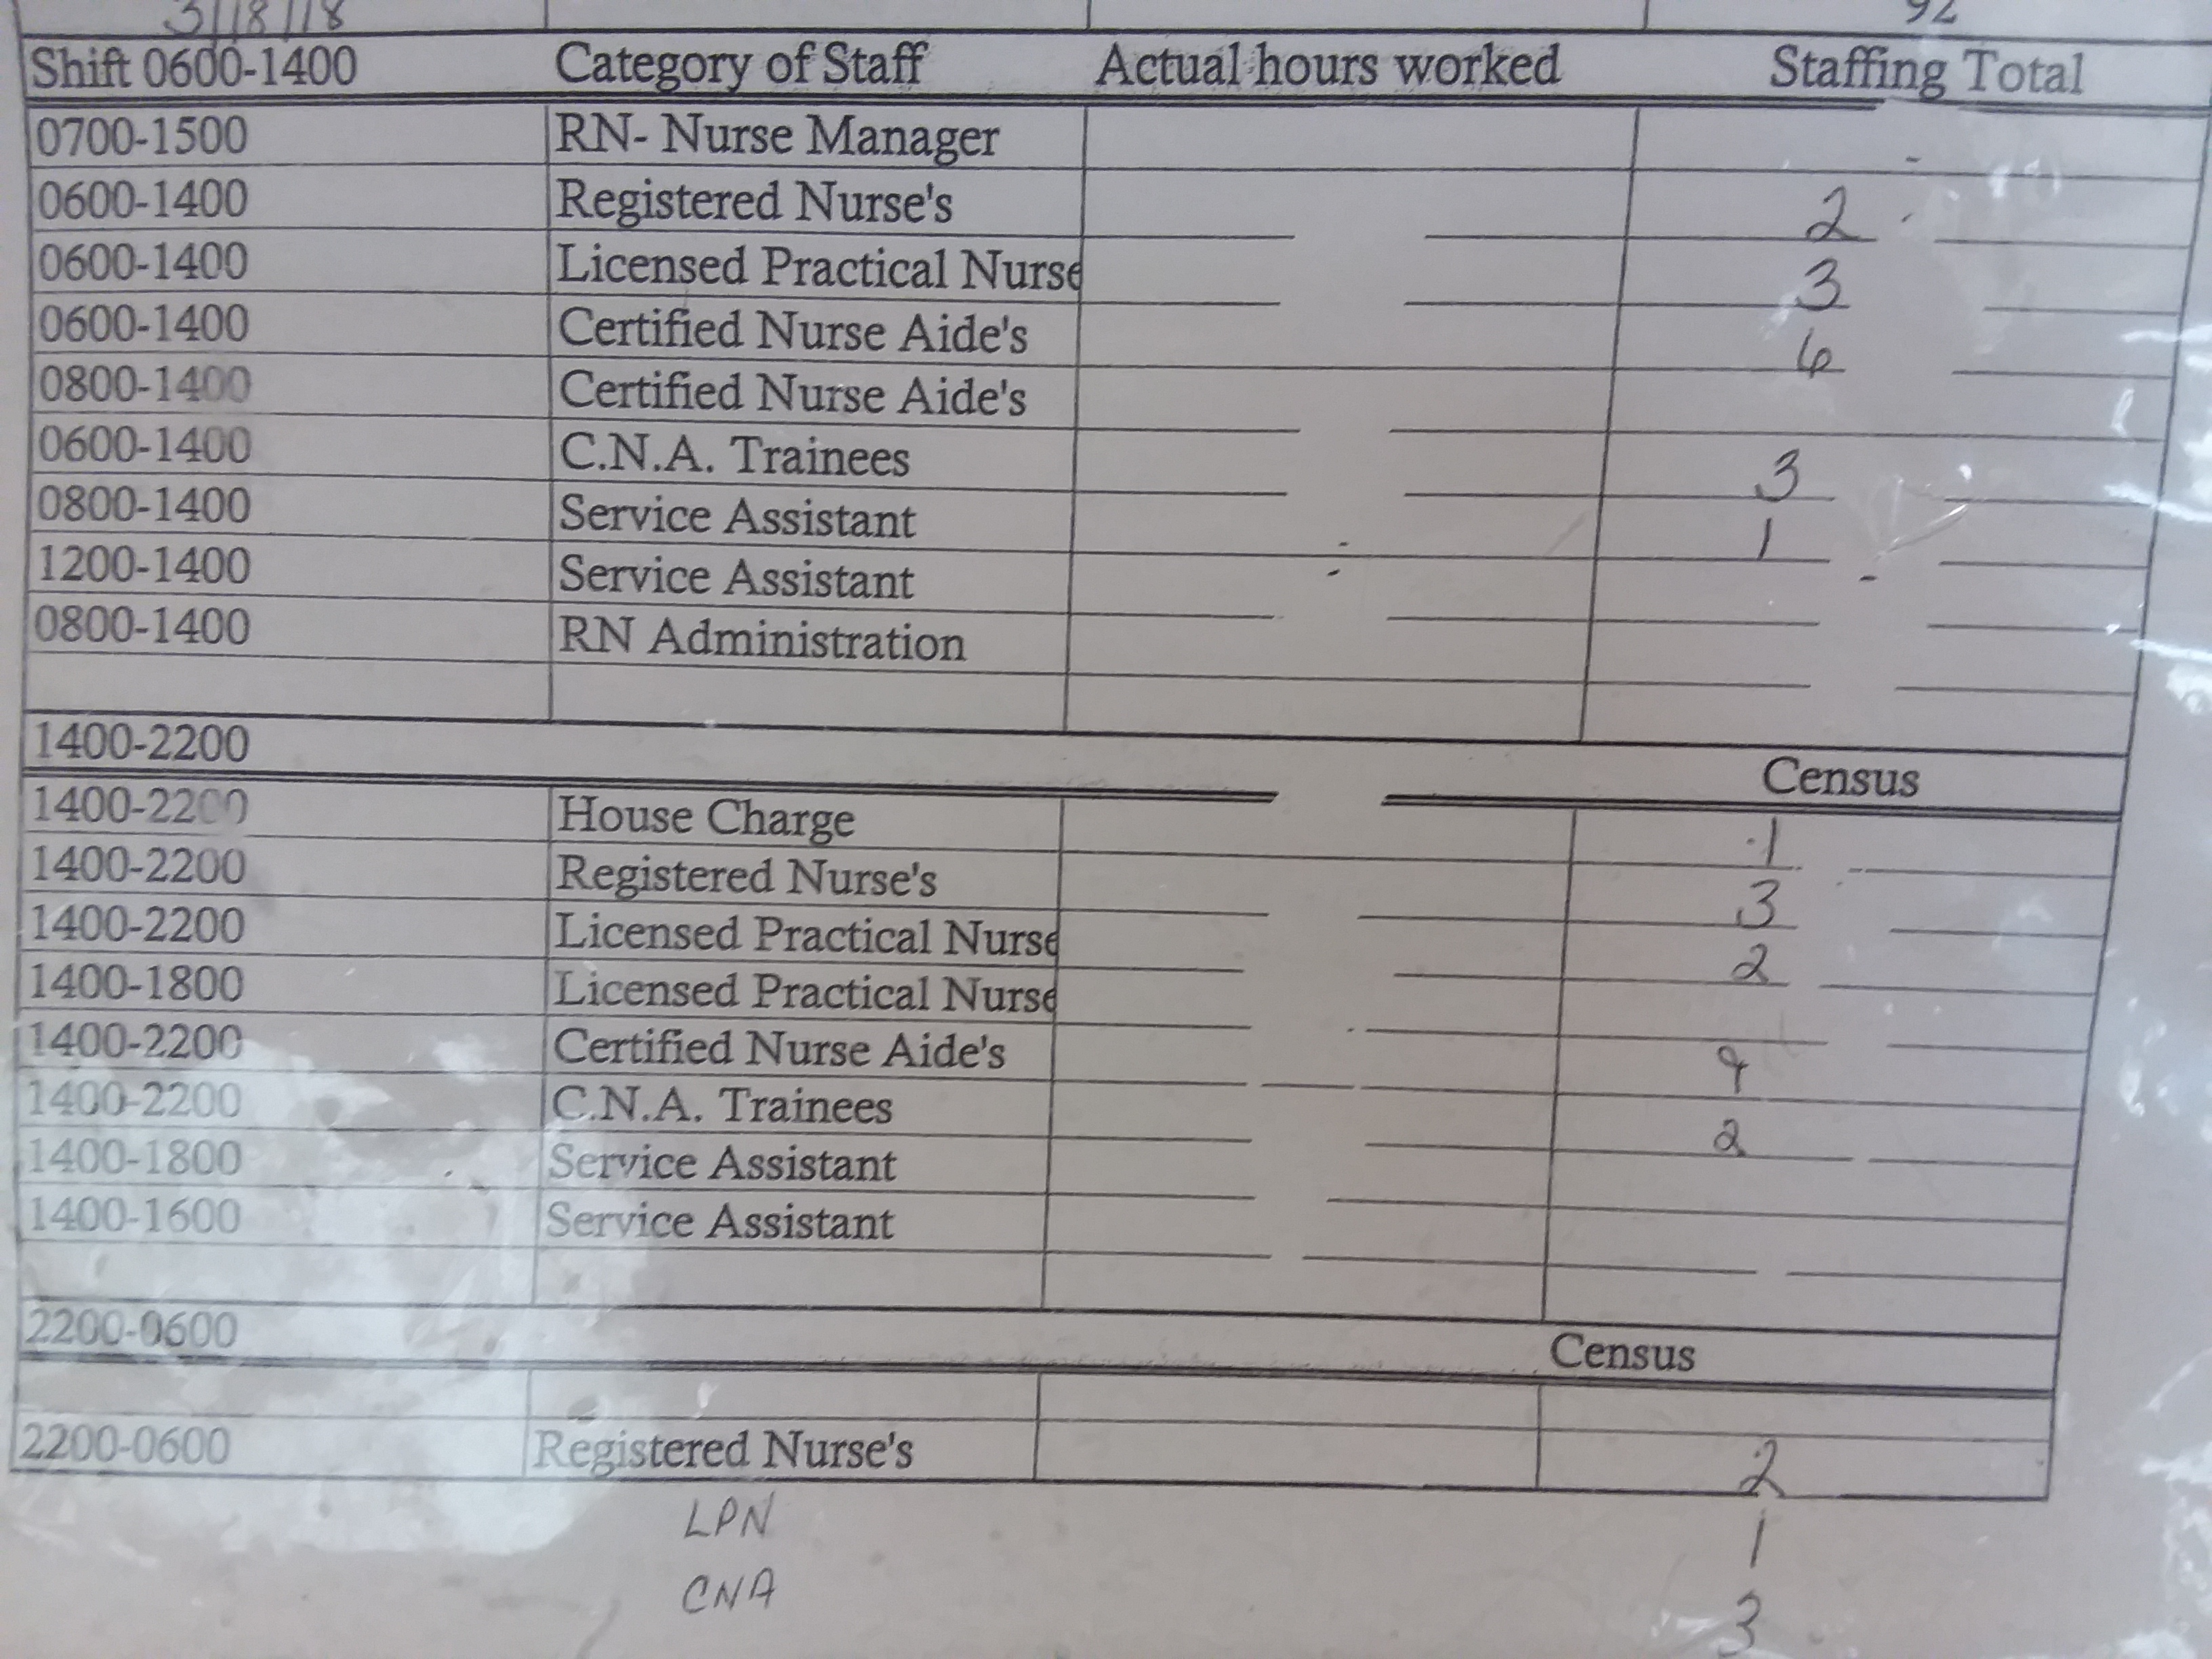 3/18/18 92
Shift 0600-1400 Category of Staff Actual hours worked Staffing Total
0700-1500 RN- Nurse Manager
0600-1400 Registered Nurse's 2
0600-1400 Licensed Practical Nurse 3
0600-1400 Certified Nurse Aide's 6
0800-1400 Certified Nurse Aide's
0600-1400 C.N.A. Trainees 3
0800-1400 Service Assistant 1
1200-1400 Service Assistant
0800-1400 RN Administration
1400-2200 Census
1400-2200 House Charge 1
1400-2200 Registered Nurse's 3
1400-2200 Licensed Practical Nurse 2
1400-1800 Licensed Practical Nurse
1400-2200 Certified Nurse Aide's 9
1400-2200 C.N.A. Trainees 2
1400-1800 Service Assistant
1400-1600 Service Assistant
2200-0600 Census
2200-0600 Registered Nurse's 2
LPN 1
CNA 3